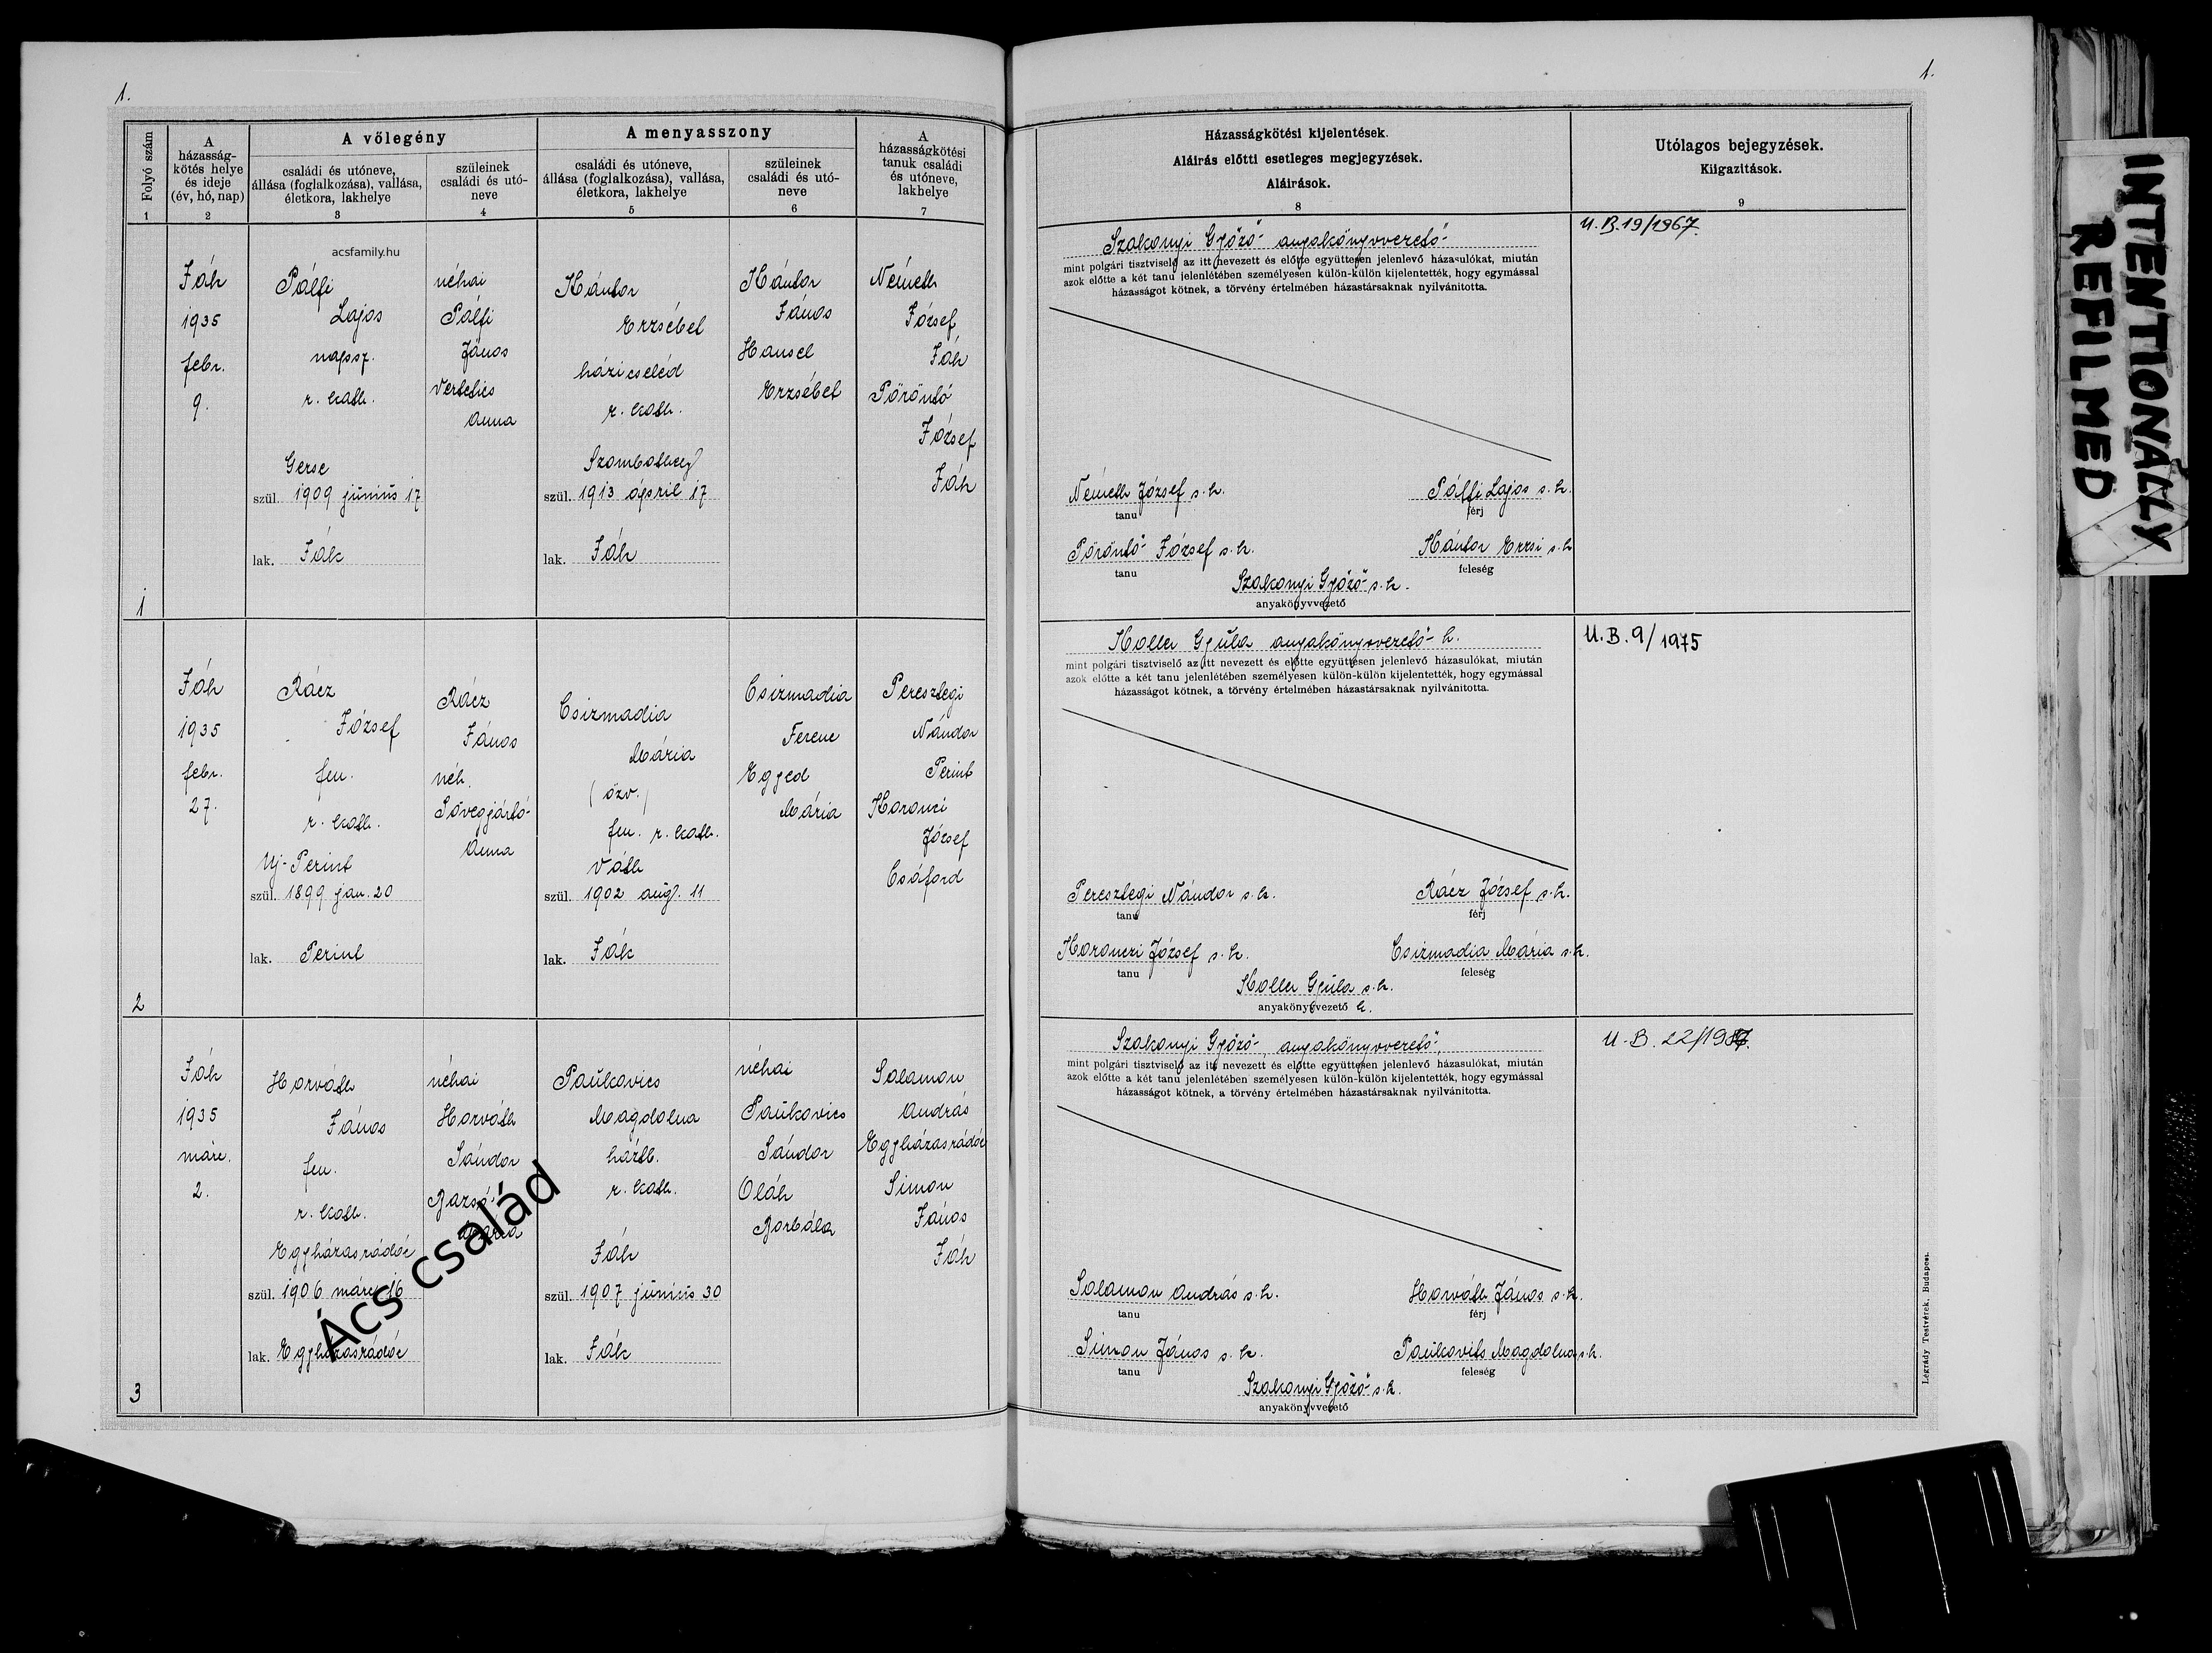 1.
Folyó szám
1
A
házasság-
kötés helye
és ideje
(év, hó, nap)
2
A vőlegény
családi és utóneve,
állása (foglalkozása), vallása,
életkora, lakhelye
3
szüleinek
családi és utó-
neve
4
A menyasszony
családi és utóneve,
állása (foglalkozása), vallása,
életkora, lakhelye
5
szüleinek
családi és utó-
neve
6
A
házasságkötési
tanuk családi
és utóneve,
lakhelye
7
acsfamily.hu
1
Ják
1935
febr.
9.
Pálfi
Lajos
napsz.
r. kath.
Gerse
szül. 1909 június 17
lak. Ják
néhai
Pálfi
János
Anna
Kántor
Erzsébet
házicseléd
r. kath.
Szombathely
szül. 1913 április 17
lak. Ják
Kántor
János
Hansel
Erzsébet
Németh
József
Ják
Pöröntő
József
Ják
2
Ják
1935
febr.
27.
Rácz
József
fm.
r. kath.
Uj-Perint
szül. 1899 jan. 20
lak. Perint
Rácz
János
néh.
Süvegjártó
Anna
Csizmadia
Mária
(özv.)
fm. r. kath.
Váth
szül. 1902 aug. 11
lak. Ják
Csizmadia
Ferenc
Egyed
Mária
Peresztegi
Nándor
Perint
József
Csáford
3
Ják
1935
márc.
2.
Horváth
János
fm.
r. kath.
Egyházasrádóc
szül. 1906 márc. 16
lak. Egyházasrádóc
néhai
Horváth
Sándor
Mária
Paukovics
Magdolna
háztb.
r. kath.
Ják
szül. 1907 június 30
lak. Ják
néhai
Paukovics
Sándor
Oláh
Borbála
Salamon
András
Egyházasrádóc
Simon
János
Ják
Ács család
1.
Házasságkötési kijelentések.
Aláirás előtti esetleges megjegyzések.
Aláirások.
8
Utólagos bejegyzések.
Kiigazitások.
9
Szakonyi Győző anyakönyvvezető
mint polgári tisztviselő az itt nevezett és előtte együttesen jelenlevő házasulókat, miután
azok előtte a két tanu jelenlétében személyesen külön-külön kijelentették, hogy egymással
házasságot kötnek, a törvény értelmében házastársaknak nyilvánitotta.
U.B.19/1967.
Németh József s.k.
tanu
Pálfi Lajos s.k.
férj
Pöröntő József s.k.
tanu
Kántor Erzsi s.k
feleség
Szakonyi Győző s.k.
anyakönyvvezető
Holler Gyula anyakönyvvezető h.
mint polgári tisztviselő az itt nevezett és előtte együttesen jelenlevő házasulókat, miután
azok előtte a két tanu jelenlétében személyesen külön-külön kijelentették, hogy egymással
házasságot kötnek, a törvény értelmében házastársaknak nyilvánitotta.
U.B.9/1975
Peresztegi Nándor s.k.
tanu
Rácz József s.k.
férj
József s.k.
tanu
Csizmadia Mária s.k.
feleség
Holler Gyula s.k.
anyakönyvvezető h.
Szakonyi Győző anyakönyvvezető
mint polgári tisztviselő az itt nevezett és előtte együttesen jelenlevő házasulókat, miután
azok előtte a két tanu jelenlétében személyesen külön-külön kijelentették, hogy egymással
házasságot kötnek, a törvény értelmében házastársaknak nyilvánitotta.
U.B.
Salamon András s.k.
tanu
Horváth János s.k.
férj
Simon János s.k.
tanu
Paukovits Magdolna s.k.
feleség
Szakonyi Győző s.k.
anyakönyvvezető
Légrády Testvérek, Budapest.
INTENTIONALLY
REFILMED